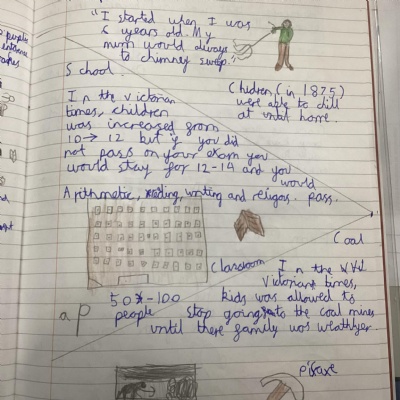 "I started when I was
6 years old. My
mum would always
to chimney sweep."
School.
Children (in 1875)
were able to chill
at until home.
In the victorian
times, children
was increased from
10 → 12 but if you did
not pass on your exam you
would stay for 12-14 and you
would
Arithmetic, reading, writing and religos. pass.
Coal
Classroom
In the
Victorian times,
50 - 100
people
kids was allowed to
stop going to the coal mines
until there family was wealthyer.
a p
pickaxe
people